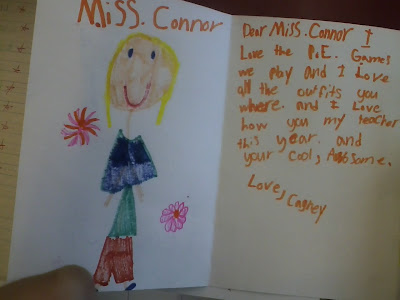 Miss. Connor
Dear Miss. Connor I
Love the P.E. Games
we play and I Love
all the outfits you
where. and I Love
how you my teacher
this year. and
your cool, Awsome.
Love,